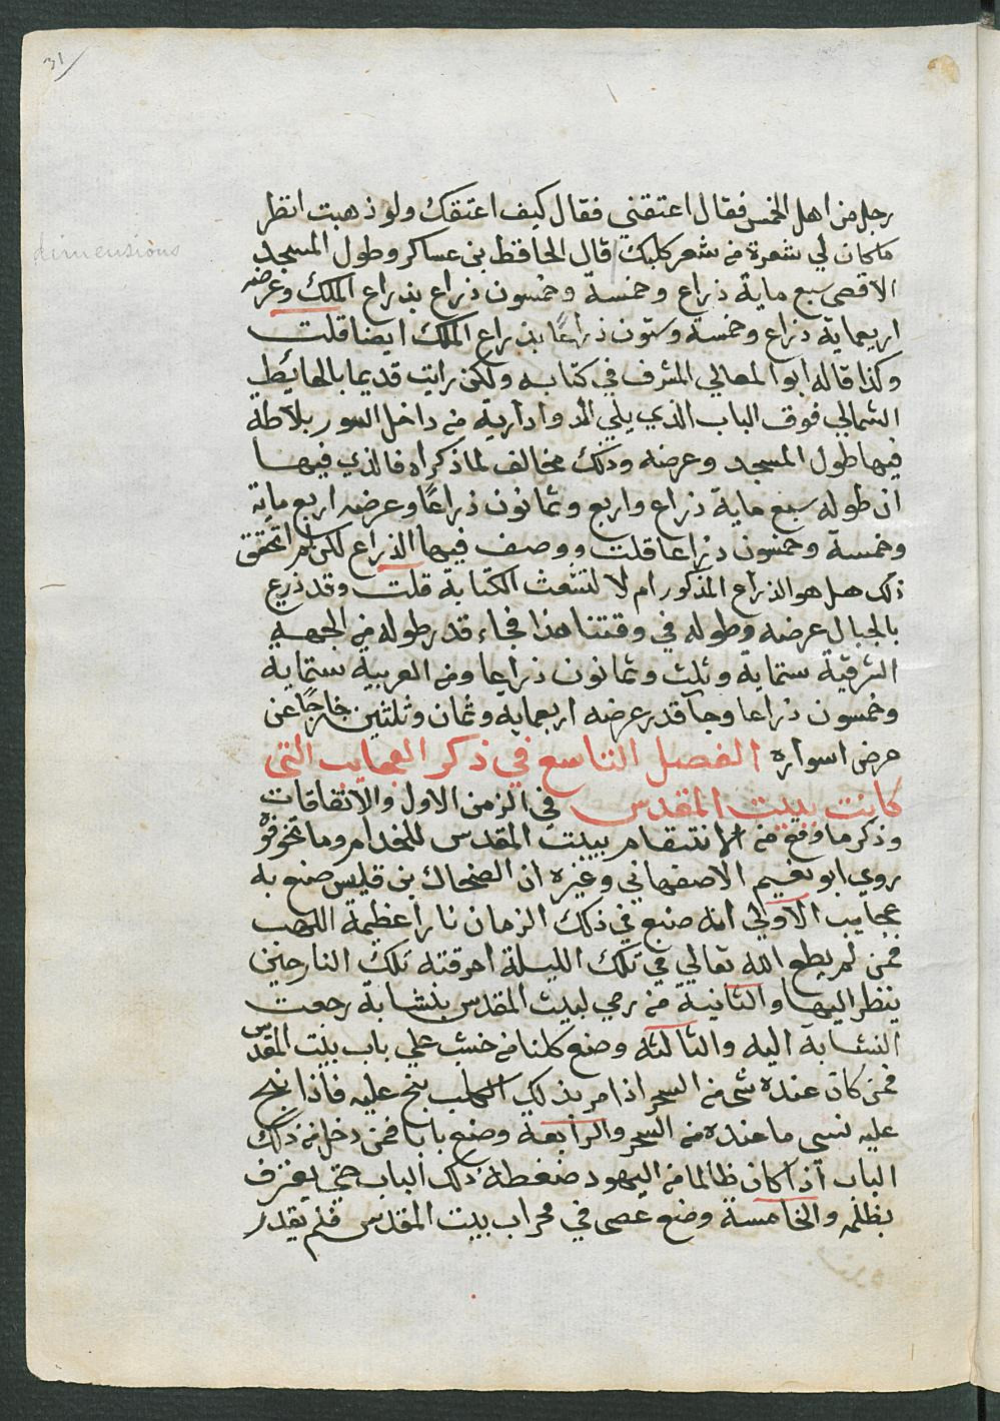 31
dimensions
رجل من اهل الخمس فقال اعتقني فقال كيف اعتقك ولو ذهبت انظر
ما كان لي شعرة من شعر كلبك قال الحافظ بن عساكر وطول المسجد
الاقصى سبع ماية ذراع وخمسة وخمسون ذراع بذراع الملك وعرضه
اربعماية ذراع وخمسة وستون ذراعًا بذراع الملك ايضا قلت
وكذا قاله ابو المعالي المشرف في كتابه ولكن رايت قديما بالحايط
الشمالي فوق الباب الذي يلي الدوادارية من داخل السور بلاطة
فيها طول المسجد وعرضه وذلك مخالف لما ذكراه فالذي فيها
ان طوله سبع ماية ذراع واربع وثمانون ذراعًا وعرضه اربع ماية
وخمسة وخمسون ذراعا قلت ووصف فيها الذراع لكن لم اتحقق
ذلك هل هو الذراع المذكور ام لا لتشعث الكتابة قلت وقد ذرع
بالحبال عرضه وطوله في وقتنا هذا فجاء قدر طوله من الجهة
الشرقية ستماية وثلث وثمانون ذراعا ومن الغربية ستماية
وخمسون ذراعا وجا قدر عرضه اربعماية وثمان وثلثين خارجًا عن
عرض اسواره الفصل التاسع في ذكر العجايب التي
كانت ببيت المقدس في الزمن الاول والاتفاقات
وذكر ما وقع من الانتقام ببيت المقدس للخدام وما تخوفوه
روي ابو نعيم الاصفهاني وغيره ان الضحاك بن قليس صنع به
عجايب الاولي انه صنع في ذلك الزمان نارا عظيمة اللهب
فمن لم يطع الله تعالي في تلك الليلة احرقته تلك النار حين
ينظر اليها والثانية من رمي لبيت المقدس بنشابة رجعت
النشابة اليه والثالثه وصنع كلبا من خشب علي باب بيت المقدس
فمن كان عنده شي من السحر اذا مر بذلك الكلب ينبح عليه فاذا نبح
عليه نسي ما عنده من السحر والرابعة وضع بابا فمن دخل من ذلك
الباب اذا كان ظالما من اليهود ضغطه ذلك الباب حتي يعترف
بظلمه والخامسة وضع عصى في محراب بيت المقدس فلم يقدر